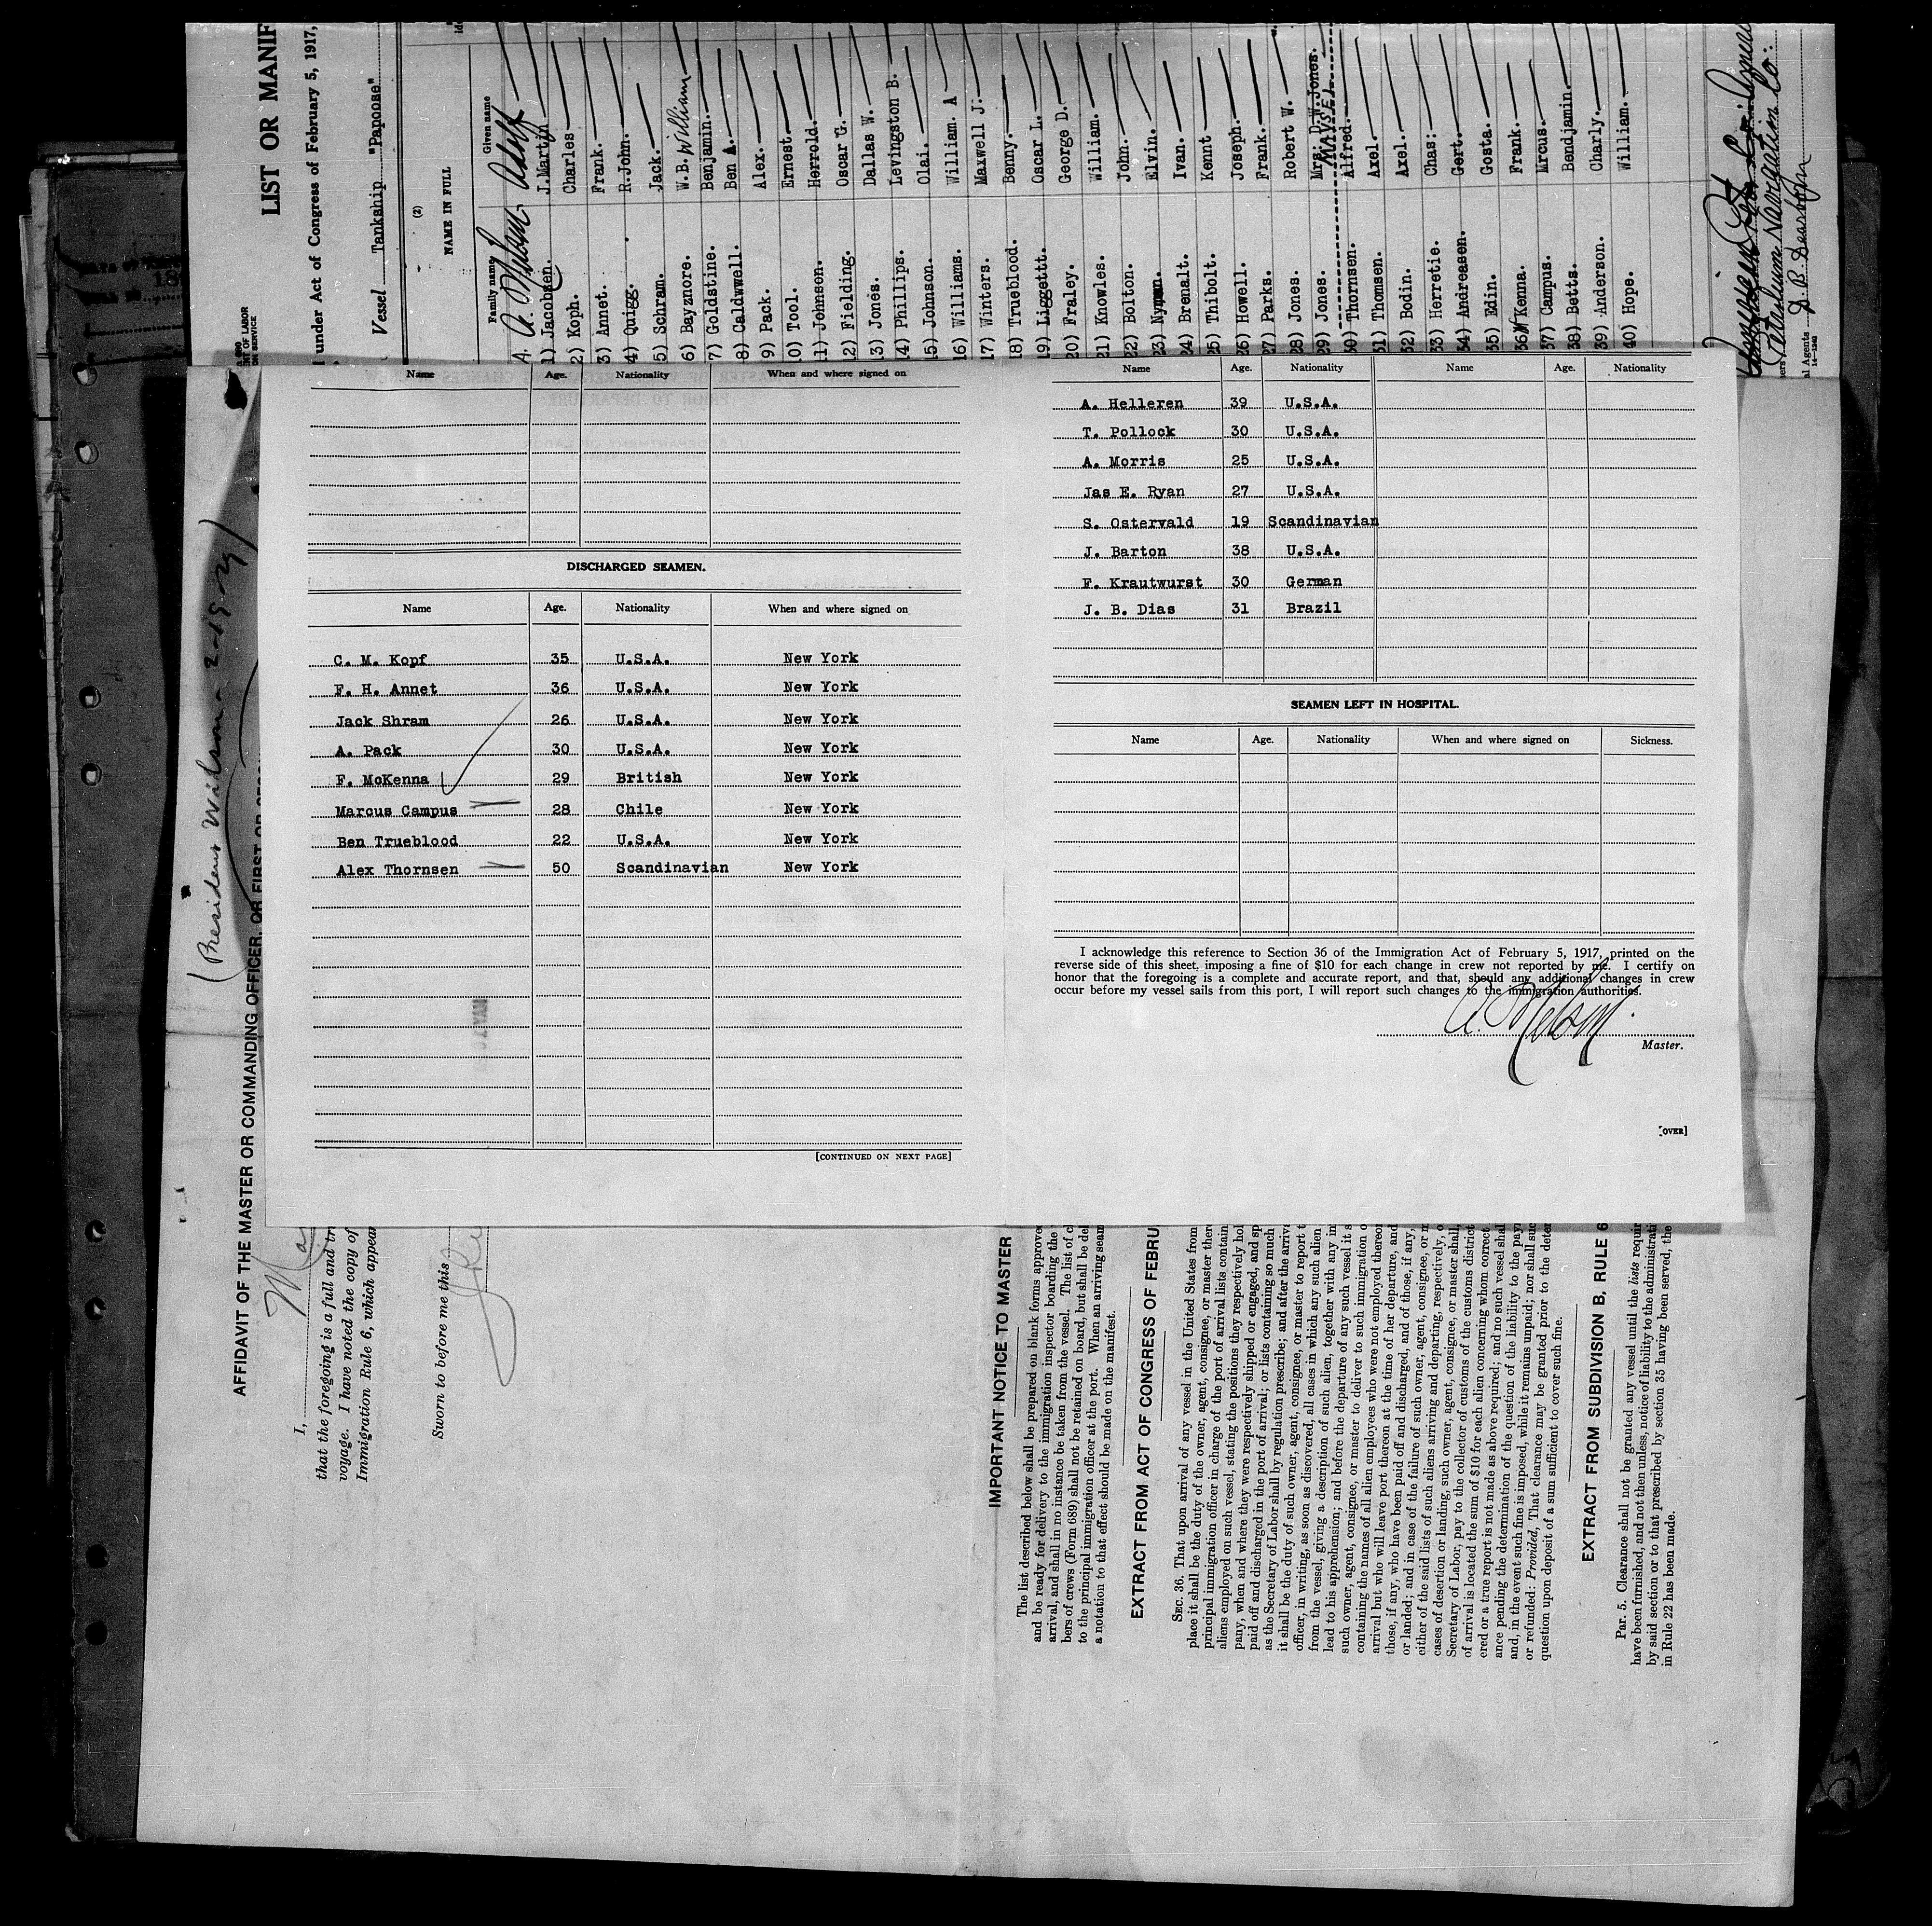 LIST OR MANIF
under Act of Congress of February 5, 1917,
Vessel Tankship "Papoose"
(2)
NAME IN FULL
Family name Given name
A. Nelson, Adolf
1) Jacobsen. J.Martin
2) Koph. Charles
3) Annet. Frank.
4) Quigg. R.John.
5) Schram. Jack.
6) Bayznore. W.B. William
7) Goldstine. Benjamin.
8) Caldwwell. Ben A.
9) Pack. Alex.
10) Tool. Ernest.
11) Johnsen. Herrold.
12) Fielding. Oscar G.
13) Jones. Dallas W.
14) Phillips. Levingston B.
15) Johnson. Olai.
16) Williams. William. A
17) Winters. Maxwell J.
18) Trueblood. Benny.
19) Liggettt. Oscar L.
20) Fraley. George D.
21) Knowles. William.
22) Bolton. John.
23) Nyman. Elvin.
24) Brenalt. Ivan.
25) Thibolt. Kennt
26) Howell. Joseph.
27) Parks. Frank.
28) Jones. Robert W.
29) Jones. Mrs. D.W.Jones.
30) Thornsen. Alfred.
31) Thomsen. Axel.
32) Bodin. Axel.
33) Herretie. Chas:
34) Andreasen. Gert.
35) Edin. Gosta.
36) Kenna. Frank.
37) Campus. Mrcus.
38) Betts. Bendjamin.
39) Anderson. Charly.
40) Hope. William.
Petroleum Navigation Co.
al Agents D. B. Dearborn
Name Age. Nationality When and where signed on
DISCHARGED SEAMEN.
Name Age. Nationality When and where signed on
C. M. Kopf 35 U.S.A. New York
F. H. Annet 36 U.S.A. New York
Jack Shram 26 U.S.A. New York
A. Pack 30 U.S.A. New York
F. McKenna 29 British New York
Marcus Campus 28 Chile New York
Ben Trueblood 22 U.S.A. New York
Alex Thornsen 50 Scandinavian New York
[CONTINUED ON NEXT PAGE]
Name Age. Nationality Name Age. Nationality
A. Helleren 39 U.S.A.
T. Pollock 30 U.S.A.
A. Morris 25 U.S.A.
Jas E. Ryan 27 U.S.A.
S. Ostervald 19 Scandinavian
J. Barton 38 U.S.A.
F. Krautwurst 30 German
J. B. Dias 31 Brazil
SEAMEN LEFT IN HOSPITAL.
Name Age. Nationality When and where signed on Sickness.
I acknowledge this reference to Section 36 of the Immigration Act of February 5, 1917, printed on the
reverse side of this sheet, imposing a fine of $10 for each change in crew not reported by me. I certify on
honor that the foregoing is a complete and accurate report, and that, should any additional changes in crew
occur before my vessel sails from this port, I will report such changes to the immigration authorities.
A. Nelson.
Master.
[OVER]
(President Wilson - 2-19-29)
AFFIDAVIT OF THE MASTER OR COMMANDING OFFICER, OR FIRST OR SECON
I,
that the foregoing is a full and tr
voyage. I have noted the copy of
Immigration Rule 6, which appear
Sworn to before me this
IMPORTANT NOTICE TO MASTER
The list described below shall be prepared on blank forms approve
and be ready for delivery to the immigration inspector boarding the
arrival, and shall in no instance be taken from the vessel. The list of c
bers of crews (Form 689) shall not be retained on board, but shall be del
to the principal immigration officer at the port. When an arriving seam
a notation to that effect should be made on the manifest.
EXTRACT FROM ACT OF CONGRESS OF FEBRU
SEC. 36. That upon arrival of any vessel in the United States from
place it shall be the duty of the owner, agent, consignee, or master ther
principal immigration officer in charge of the port of arrival lists contain
aliens employed on such vessel, stating the positions they respectively hol
pany, when and where they were respectively shipped or engaged, and sp
paid off and discharged in the port of arrival; or lists containing so much
as the Secretary of Labor shall by regulation prescribe; and after the arriva
it shall be the duty of such owner, agent, consignee, or master to report t
officer, in writing, as soon as discovered, all cases in which any such alien
from the vessel, giving a description of such alien, together with any in
lead to his apprehension; and before the departure of any such vessel it s
such owner, agent, consignee, or master to deliver to such immigration o
containing the names of all alien employees who were not employed thereo
arrival but who will leave port thereon at the time of her departure, and
those, if any, who have been paid off and discharged, and of those, if any,
or landed; and in case of the failure of such owner, agent, consignee, or m
either of the said lists of such aliens arriving and departing, respectively, o
cases of desertion or landing, such owner, agent, consignee, or master shall,
Secretary of Labor, pay to the collector of customs of the customs district
of arrival is located the sum of $10 for each alien concerning whom correct
ered or a true report is not made as above required; and no such vessel shal
ance pending the determination of the question of the liability to the pay
and, in the event such fine is imposed, while it remains unpaid; nor shall suc
or refunded: Provided, That clearance may be granted prior to the deter
question upon deposit of a sum sufficient to cover such fine.
EXTRACT FROM SUBDIVISION B, RULE 6
Par. 5. Clearance shall not be granted any vessel until the lists requir
have been furnished, and not then unless, notice of liability to the administrati
by said section or to that prescribed by section 35 having been served, the
in Rule 22 has been made.